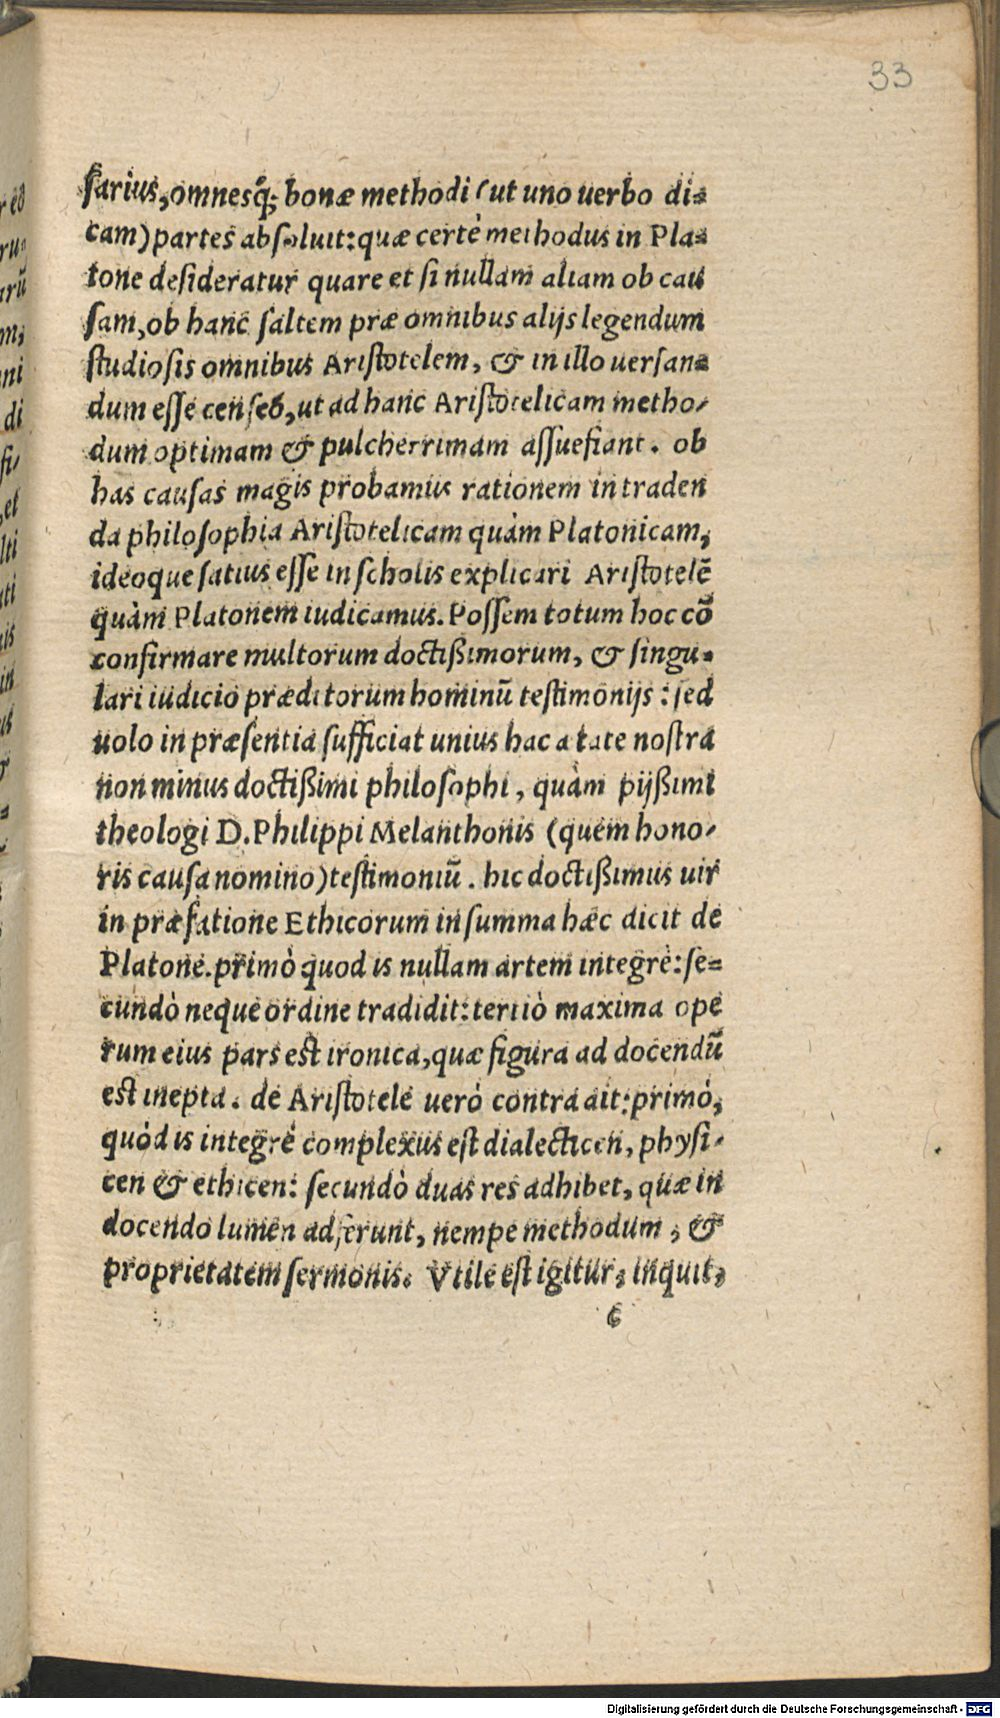 33
ſarius, omnesq́; bonæ methodi (ut uno uerbo di=
cam) partes abſoluit: quæ certè methodus in Pla=
tone deſideratur quare et ſi nullam aliam ob cau
ſam, ob hanc ſaltem præ omnibus alijs legendum
ſtudioſis omnibus Ariſtotelem, & in illo uerſan=
dum eſſe cenſeo, ut ad hanc Ariſtotelicam metho-
dum optimam & pulcherrimam aſſuefiant. ob
has cauſas magis probamus rationem in traden
da philoſophia Ariſtotelicam quàm Platonicam,
ideoque ſatius eſſe in ſcholis explicari Ariſtotelē
quàm Platonem iudicamus. Poſſem totum hoc cō
confirmare multorum doctißimorum, & ſingu=
lari iudicio præditorum hominū teſtimonijs: ſed
uolo in præſentia ſufficiat unius hac ætate noſtra
non minus doctißimi philoſophi, quàm pijßimi
theologi D. Philippi Melanthonis (quem hono-
ris cauſa nomino) teſtimoniū. hic doctißimus uir
in præfatione Ethicorum in ſumma hæc dicit de
Platone. primò quod is nullam artem integrè: ſe=
cundò neque ordine tradidit: tertiò maxima ope
rum eius pars eſt ironica, quæ figura ad docendū
eſt inepta. de Ariſtotele uerò contra ait: primò,
quòd is integrè complexus eſt dialecticen, phyſi-
cen & ethicen: ſecundò duas res adhibet, quæ in
docendo lumen adferunt, nempe methodum, &
proprietatem ſermonis. Vtile eſt igitur, inquit,
Digitalisierung gefördert durch die Deutsche Forschungsgemeinschaft - DFG